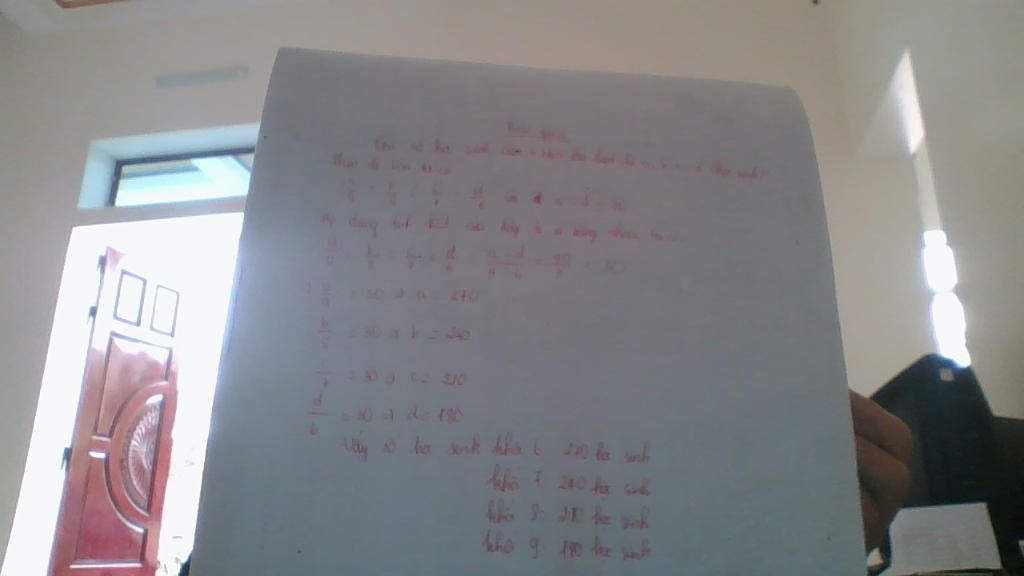 Bài giải
Gọi số học sinh của 4 khối lần lượt là a, b, c, d (học sinh)
Theo đề bài ta có
a/9 = b/8 = c/7 = d/6 và a - d = 90
Áp dụng tính chất của dãy tỉ số bằng nhau ta có
a/9 = b/8 = c/7 = d/6 = a - d/9 - 6 = 90/3 = 30
a/9 = 30 → a = 270
b/8 = 30 → b = 240
c/7 = 30 → c = 210
d/6 = 30 → d = 180
Vậy số học sinh khối 6 270 học sinh
khối 7 240 học sinh
khối 8 210 học sinh
khối 9 180 học sinh